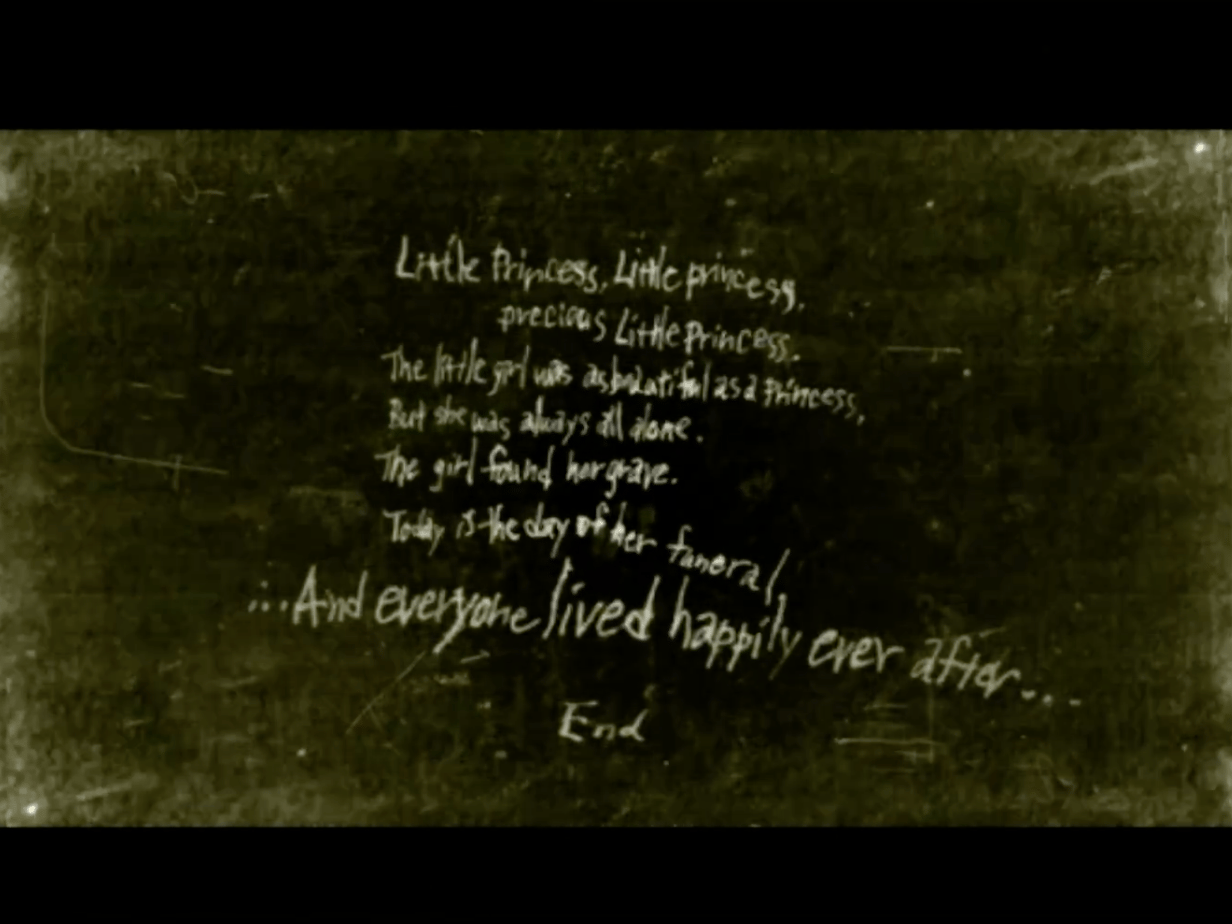 Little Princess, Little princess,
precious Little Princess.
The little girl was as beautiful as a Princess,
But she was always all alone.
The girl found her grave.
Today is the day of her funeral,
...And everyone lived happily ever after...
End